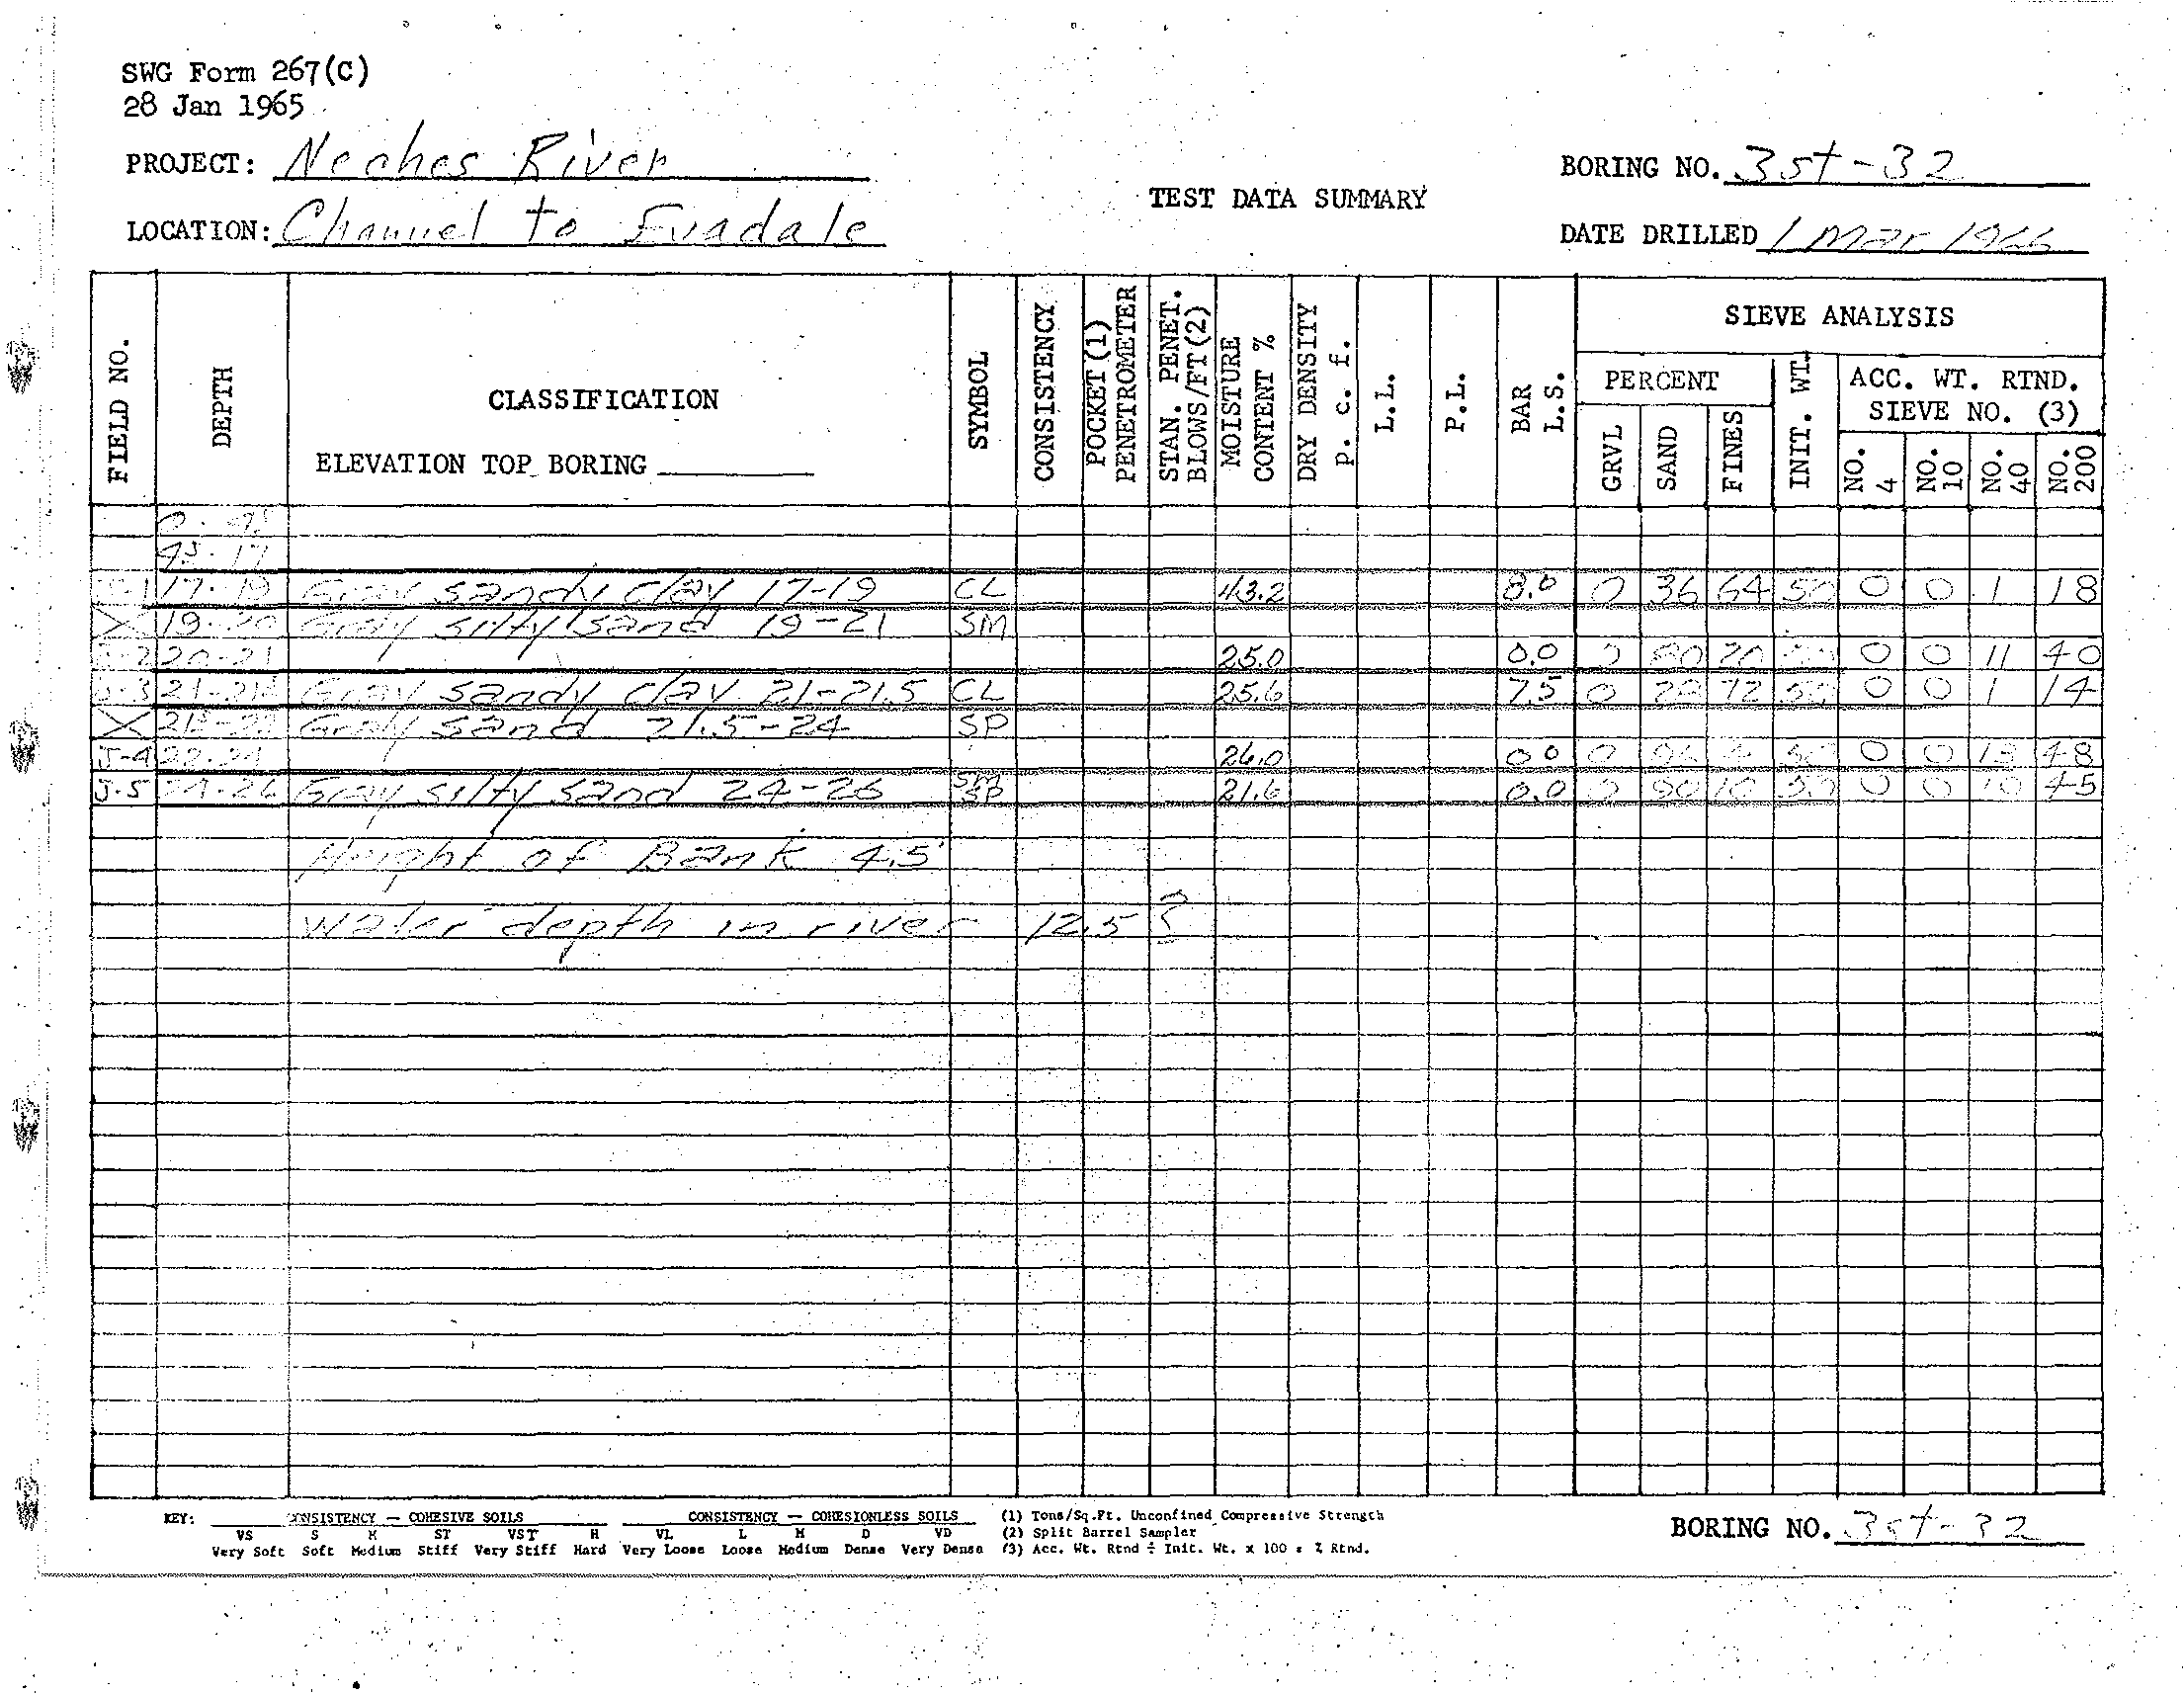 SWG Form 267(C)
28 Jan 1965
PROJECT: Neches River
BORING NO. 3st-32
TEST DATA SUMMARY
LOCATION: Channel to Evadale
DATE DRILLED 1 Mar 1966
FIELD NO. DEPTH CLASSIFICATION SYMBOL CONSISTENCY POCKET (1) PENETROMETER STAN. PENET. BLOWS/FT(2) MOISTURE CONTENT % DRY DENSITY p. c. f. L.L. P.L. BAR L.S. SIEVE ANALYSIS
PERCENT INIT. WT. ACC. WT. RTND. SIEVE NO. (3)
ELEVATION TOP BORING
GRVL SAND FINES NO. 4 NO. 10 NO. 40 NO. 200
4.5-17
17-19 Gray sandy clay 17-19 CL 43.2 8.0 0 36 64 50 0 0 1 18
X 19-20 Gray silty sand 19-21 SM
20-21 25.0 0.0 0 80 20 0 0 11 40
J-3 Gray sandy clay 21-21.5 CL 25.6 7.5 0 28 72 50 0 0 1 14
X Gray sand 21.5-24 SP
J-4 22-24 26.0 0.0 0 50 0 0 13 48
J-5 24-26 Gray silty sand 24-26 SM SP 21.6 0.0 0 90 10 50 0 0 10 45
Height of Bank 4.5'
Water depth in river 12.5
KEY: CONSISTENCY — COHESIVE SOILS CONSISTENCY — COHESIONLESS SOILS (1) Tons/Sq.Ft. Unconfined Compressive Strength
VS S M ST VST H VL L M D VD (2) Split Barrel Sampler
Very Soft Soft Medium Stiff Very Stiff Hard Very Loose Loose Medium Dense Very Dense (3) Acc. Wt. Rtnd ÷ Init. Wt. x 100 = % Rtnd.
BORING NO. 3st-32